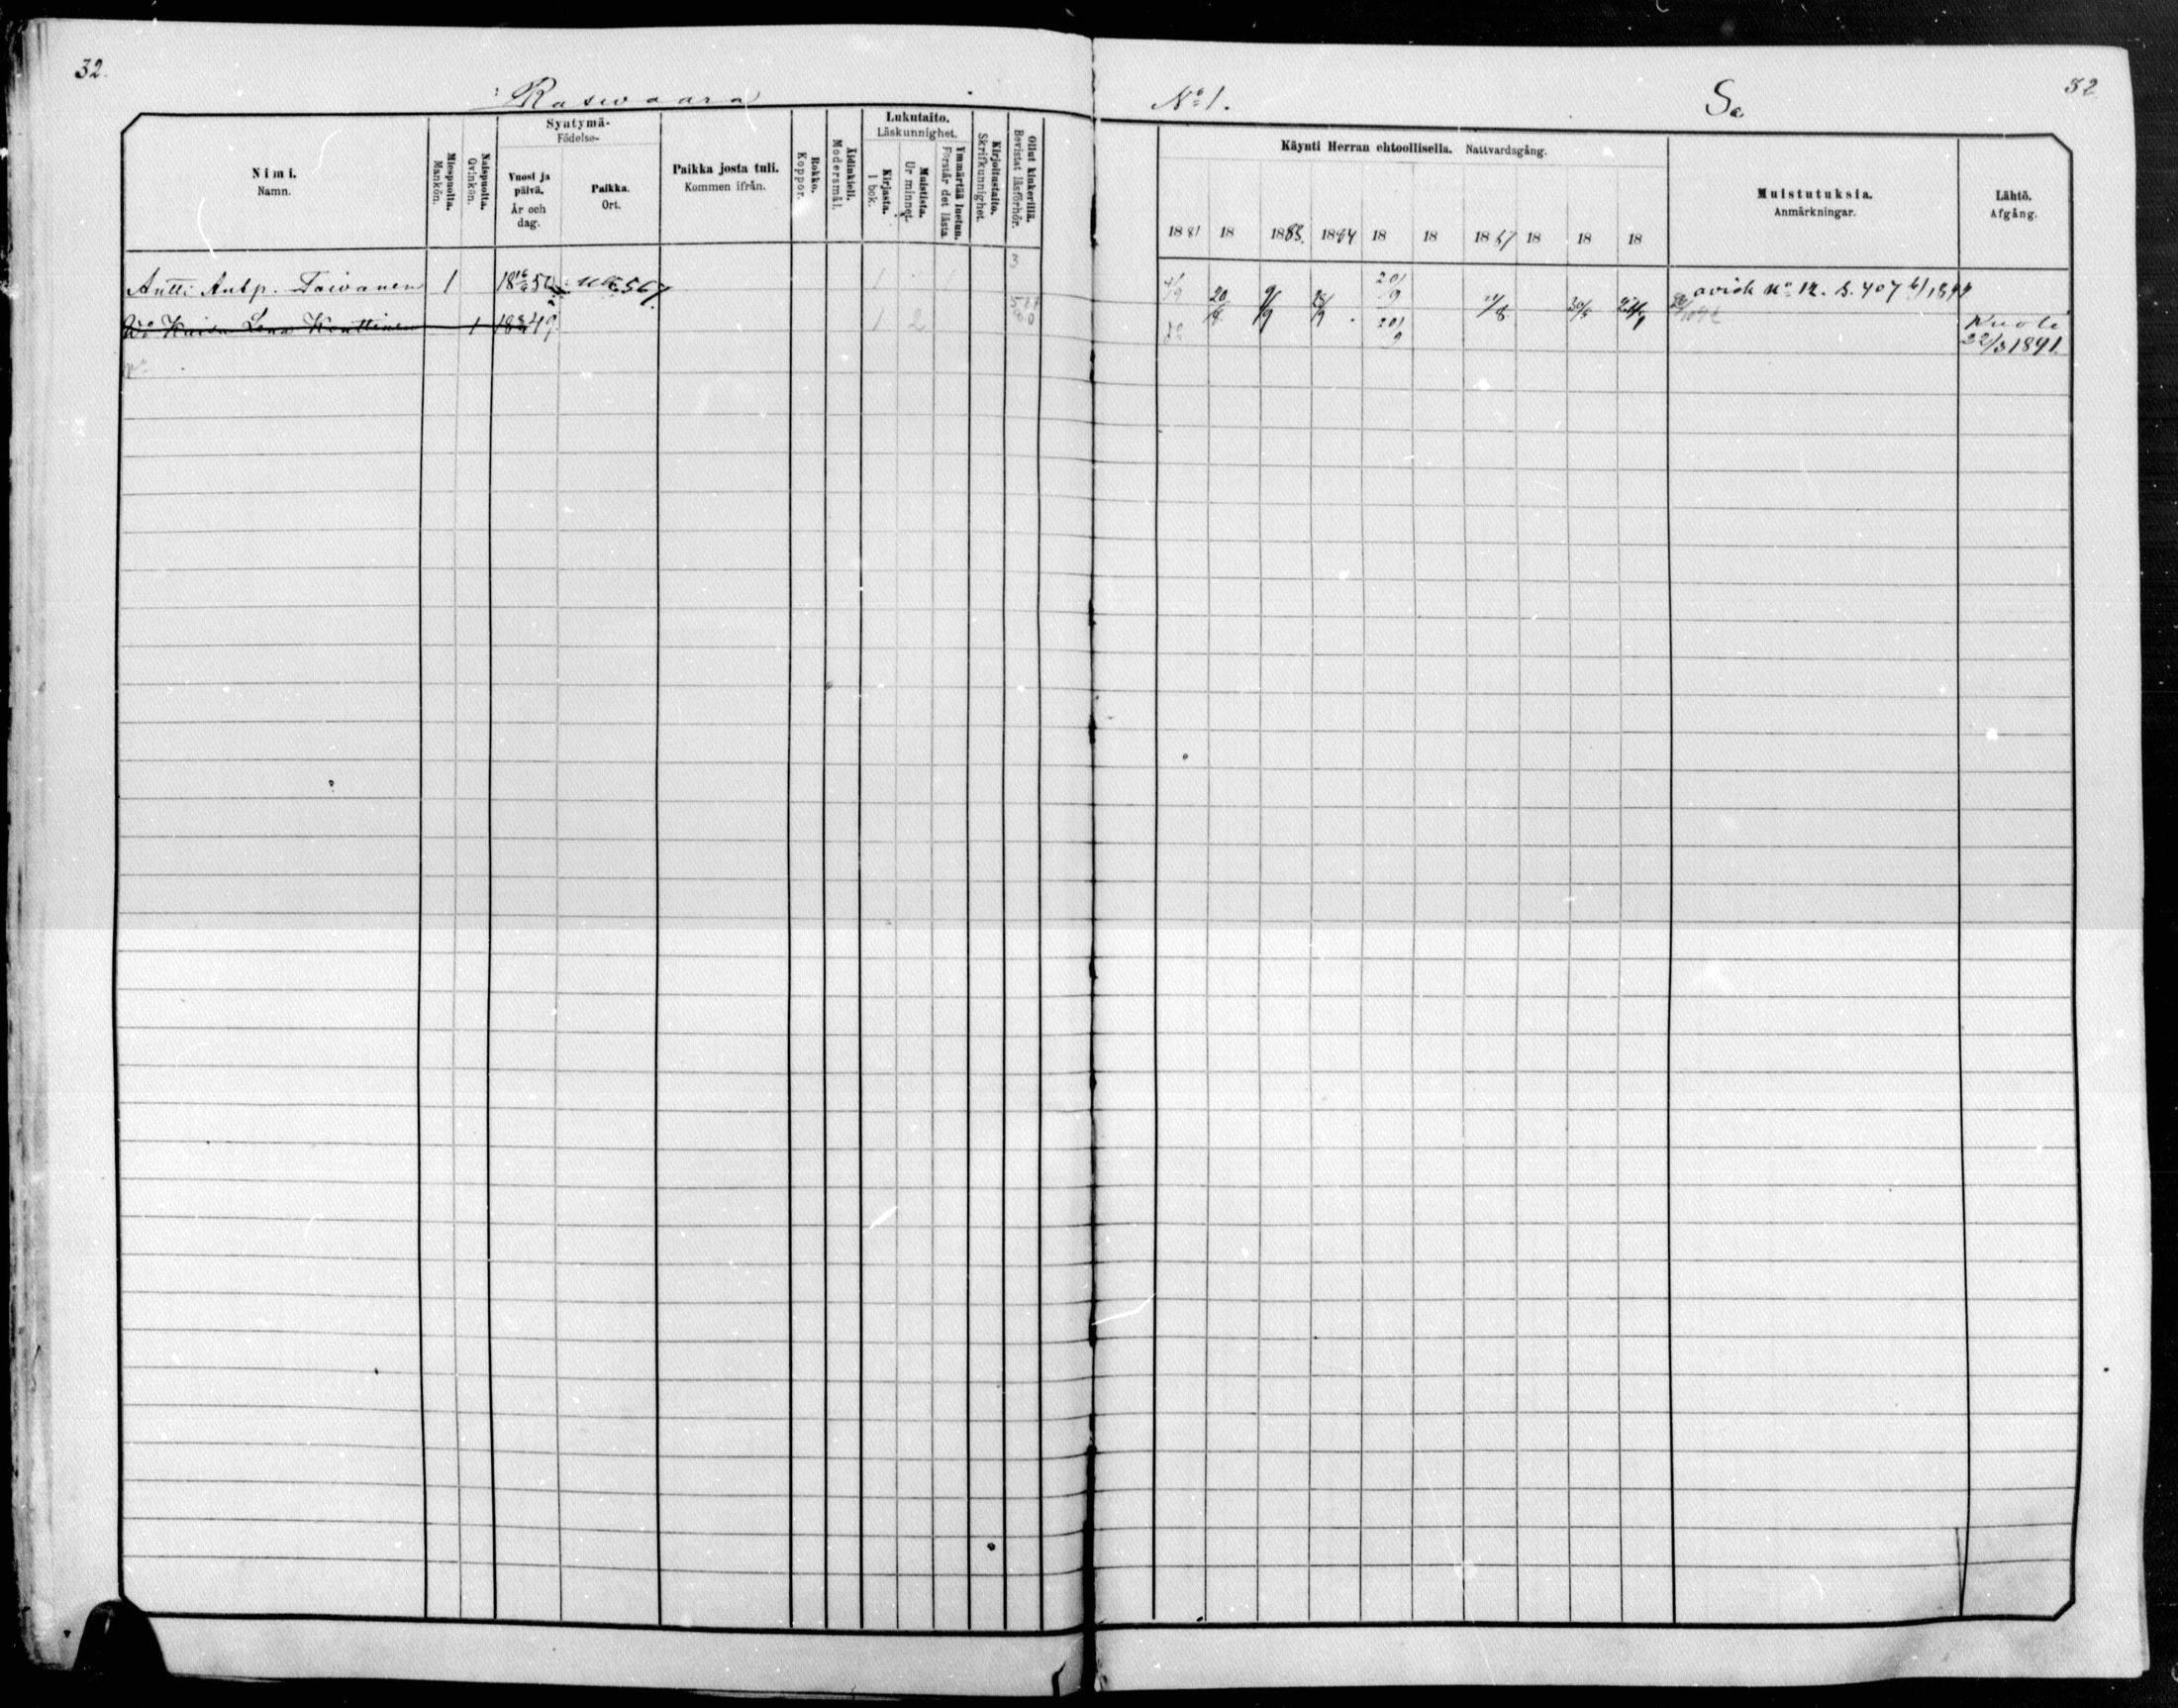 32.
Raswaara
Nimi.
Namn.
Miespuolia.
Mankön.
Naispuolia.
Qvinkön.
Syntymä-
Födelse-
Vuosi ja
päivä.
År och
dag.
Paikka.
Ort.
Paikka josta tuli.
Kommen ifrån.
Rokko.
Koppor.
Äidinkieli.
Modersmål.
Lukutaito.
Läskunnighet.
Kirjasta.
I bok.
Muistista.
Ur minnet.
Ymmärtää luetun.
Förstår det lästa.
Kirjoitustaito.
Skrifkunnighet.
Ollut kinkerillä.
Bevistat läsförhör.
Antti Antp. Taivanen 1 1 3
Wo Kaisa Lena Konttinen 1 1 2
No 1.
Sa
32
Käynti Herran ehtoollisella. Nattvardsgång.
1881 18 1883. 1884 18 18 1887 18 18 18
Muistutuksia.
Anmärkningar.
Lähtö.
Afgång.
20/9
aviok No 12. S. 407
20/9
Kuoli
22/3 1891.